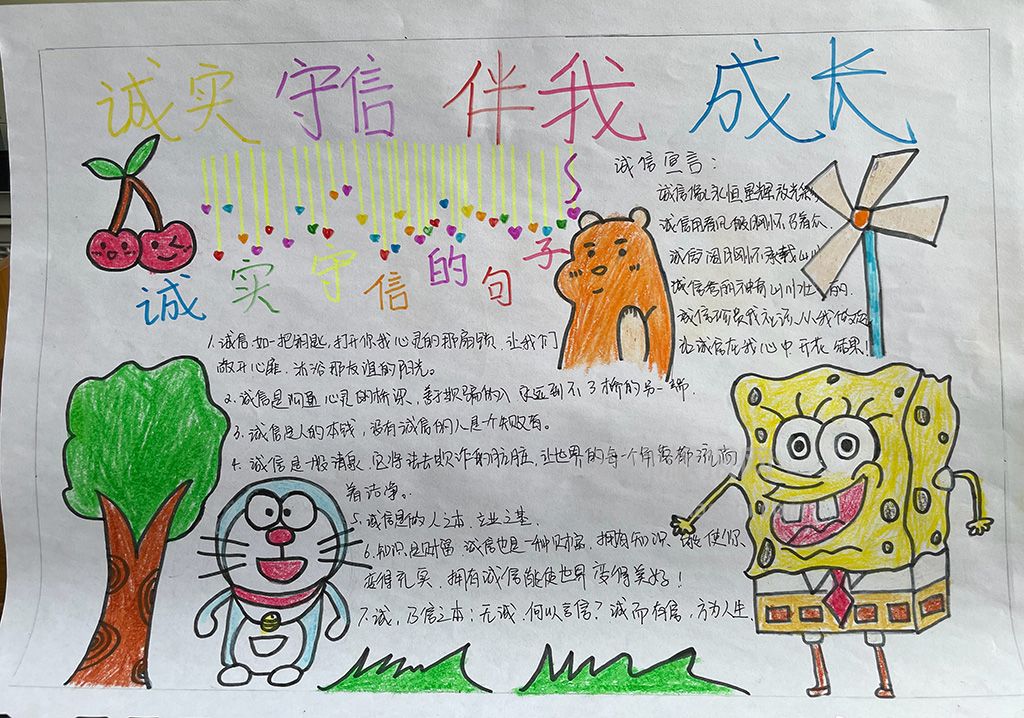 诚实守信 伴我 成长
诚信宣言：
诚信像永恒星辉放光
诚信
诚信
诚信
诚信 我 从我做
让诚信在我心中开花结果！
诚实守信的句子
1.诚信如一把钥匙，打开你我心灵的那扇锁，让我们
敞开心扉，沐浴那友谊的阳光。
2.诚信是沟通心灵的桥梁，善于欺骗的人永远到不了桥的另一端．
3.诚信是人的本钱，没有诚信的人是个失败者。
4.诚信是一股清泉，它将洗去欺诈的肮脏，让世界的每一个角落都流淌
着洁净。
5.诚信是做人之本．立业之基．
6.知识是财富 诚信也是一种财富．拥有知识．能使你
变得充实．拥有诚信能使世界变得美好！
7.诚，乃信之本；无诚．何以言信？诚而有信，方为人生．